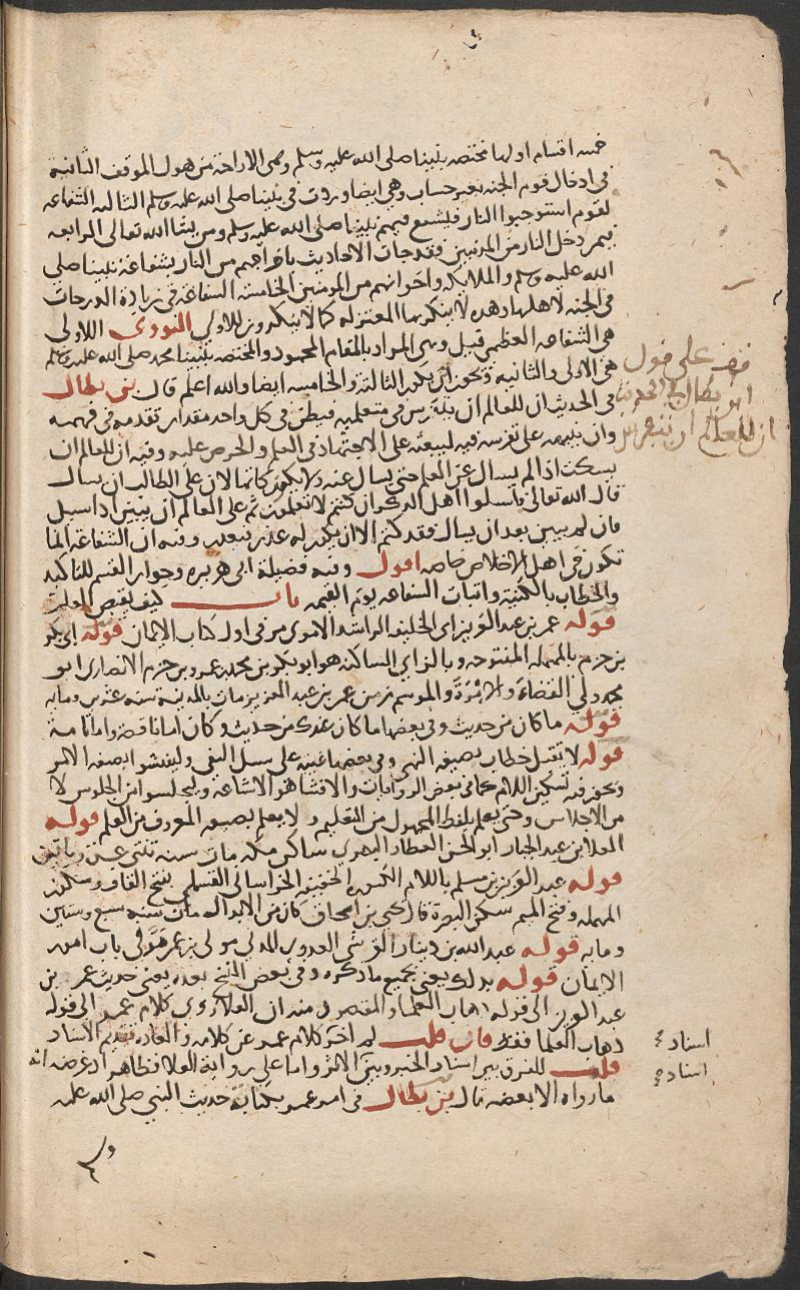 خمسة اقسام اولها مختصة بنبينا صلى الله عليه وسلم وهى الاراحة من هول الموقف الثانية
فى ادخال قوم الجنة بغير حساب وهى ايضا وردت فى نبينا صلى الله عليه وسلم الثالثة الشفاعه
لقوم استوجبوا النار فيشفع فيهم نبينا صلى الله عليه وسلم ومن يشا الله تعالى الرابعه
فيمن دخل النار من المذنبين فقد جات الاحاديث باخراجهم من النار بشفاعة نبينا صلى
الله عليه وسلم والملايكه واخوانهم من المومنين الخامسة الشفاعة فى زيادة الدرجات
فى الجنه لاهلها وهذه لا ينكرها المعتزله كما لا ينكرون الاولى النووى الاولى
هى الشفاعه العظمى قيل وهى المراد بالمقام المحمود والمختصه بنبينا محمد صلى الله عليه وسلم
هى الاولى والثانيه ويجوز ان يكون الثالثة والخامسه ايضا والله اعلم قال بن بطال
فى الحديث ان للعالم ان يتفرس فى متعلميه فيظن فى كل واحد مقدار تقدمه فى فهمه
وان ينبهه على تفرسه فيه ليبعثه على الاجتهاد فى العلم والحرص عليه وفيه ان للعالم ان
يسكت اذا لم يسال عن العلم حتى يسال عنه ولا يكون كاتما لان على الطالب ان يسال
قال الله تعالى فاسلوا اهل الذكر ان كنتم لا تعلمون ثم على العالم ان يبين اذا سيل
فان لم يبين بعد ان يسال فقد كتم الا ان يكون له عذر فيعذر وفيه ان الشفاعة انما
تكون فى اهل الاخلاص خاصه اقول وفيه فضيلة ابى هريره وجواز القسم للتاكيد
والخطاب بالكنية واثبات الشفاعه يوم القيمه باب كيف يقبض العلم
قوله عمر بن عبد العزيز اى الخليفة الراشد الاموى مر فى اول كتاب الايمان قوله ابى بكر
بن حزم بالمهملة المفتوحه وبالزاى الساكنه هو ابو بكر بن محمد بن عمرو بن حزم الانصارى ابو
محمد ولى القضاء والامرة والموسم زمن عمر بن عبد العزيز مات بالمدينة سنه عشرين ومايه
قوله ما كان من حديث وفى بعضها ما كان عندك من حديث وكان اما ناقصة واما تامة
قوله لا يقبل خطاب بصيغه النهى وفى بعضها غيبه على سبيل النفى وليفشوا بصيغه الامر
ويجوز فيه تسكين اللام كما فى بعض الروايات والافشا هو الاشاعه وليجلسوا من الجلوس لا
من الاجلاس وحتى يعلم بلفظ المجهول من التعليم و لا يعلم بصيغه المعروف من العلم قوله
العلا بن عبد الجبار ابو الحسن العطار البصرى ساكن مكه مات سنه ثنتى عشرة ومايتين
قوله عبد العزيز بن مسلم باللام المكسوره الخفيفه الخراسانى القسملى بفتح القاف وسكون
المهمله وفتح الميم سكن البصرة قال يحيى بن اسحاق كان من الابدال مات سنه سبع وستين
ومايه قوله عبد الله بن دينار القرشى العدوى المدنى مولى بن عمر مر فى باب امور
الايمان قوله بذلك يعنى بجميع ما ذكره وفى بعض النسخ بعده يعنى حديث عمر بن
عبد العزيز الى قوله ذهاب العلما والمقصود منه ان العلا روى كلام عمر الى قوله
ذهاب العلما فقط فان قلت لم اخر كلام عمر عن كلامه والعادة تقديم الاسناد
قلت للفرق بين اسناد الخبر وبين الاثر واما على رواية العلا فظاهر اذ غرضه انه
ما رواه الا بعضه قال بن بطال فى امر عمر بكتابة حديث النبى صلى الله عليه
قف على قول
ابن بطال فى الحديث
ان للعالم ان يتفرس
اسناد
اسناد